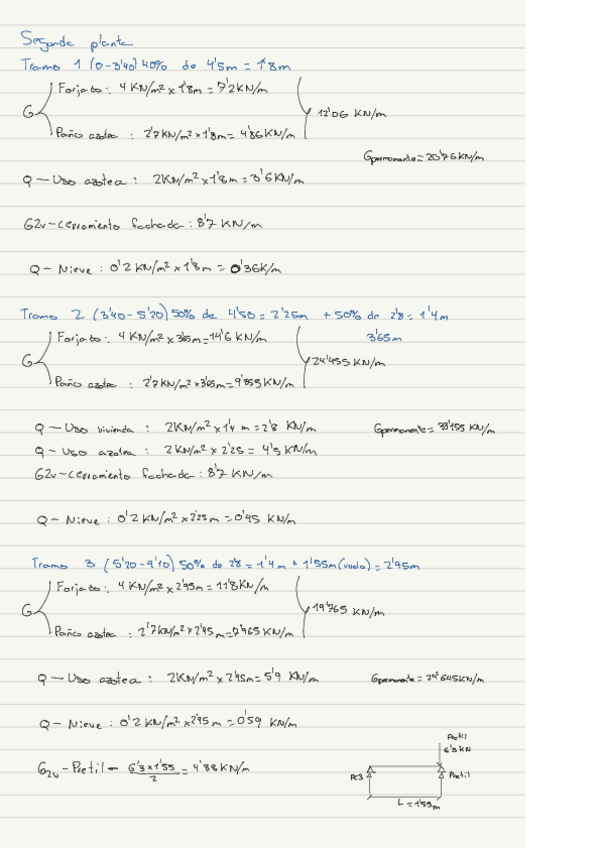 Segunda planta
Tramo 1 (0-3'40) 40% de 4'5m = 1'8m
Forjado: 4 KN/m² x 1'8m = 7'2KN/m
G
12'06 KN/m
Paño azotea : 2'7KN/m² x 1'8m = 4'86 KN/m
Gpermanente = 20'76 KN/m
Q - Uso azotea : 2KN/m² x 1'8m = 3'6 KN/m
G2v-cerramiento fachada : 8'7 KN/m
Q - Nieve : 0'2 KN/m² x 1'8m = 0'36K/m
Tramo 2 (3'40 - 5'20) 50% de 4'50 = 2'25m + 50% de 2'8 = 1'4m
Forjado: 4 KN/m² x 3'65m = 14'6 KN/m
3'65m
G
24'455 KN/m
Paño azotea : 2'7KN/m² x 3'65m = 9'855 KN/m
Q - Uso vivienda : 2KN/m² x 1'4 m = 2'8 KN/m
Gpermanente = 33'155 KN/m
Q - Uso azotea : 2 KN/m² x 2'25 = 4'5 KN/m
G2v-cerramiento fachada : 8'7 KN/m
Q - Nieve : 0'2 KN/m² x 2'25m = 0'45 KN/m
Tramo 3 (5'20 - 9'10) 50% de 2'8 = 1'4 m + 1'55m (vuelo) = 2'95m
Forjado: 4 KN/m² x 2'95m = 11'8KN/m
G
19'765 KN/m
Paño azotea : 2'7KN/m² x 2'95 m = 7'965 KN/m
Q - Uso azotea : 2KN/m² x 2'95m = 5'9 KN/m
Gpermanente = 24'645KN/m
Q - Nieve : 0'2 KN/m² x 2'95 m = 0'59 KN/m
Pretil
6'3 KN
G2v - Pretil - 6'3 x 1'55 / 2 = 4'88 KN/m
Pretil
L = 1'55m